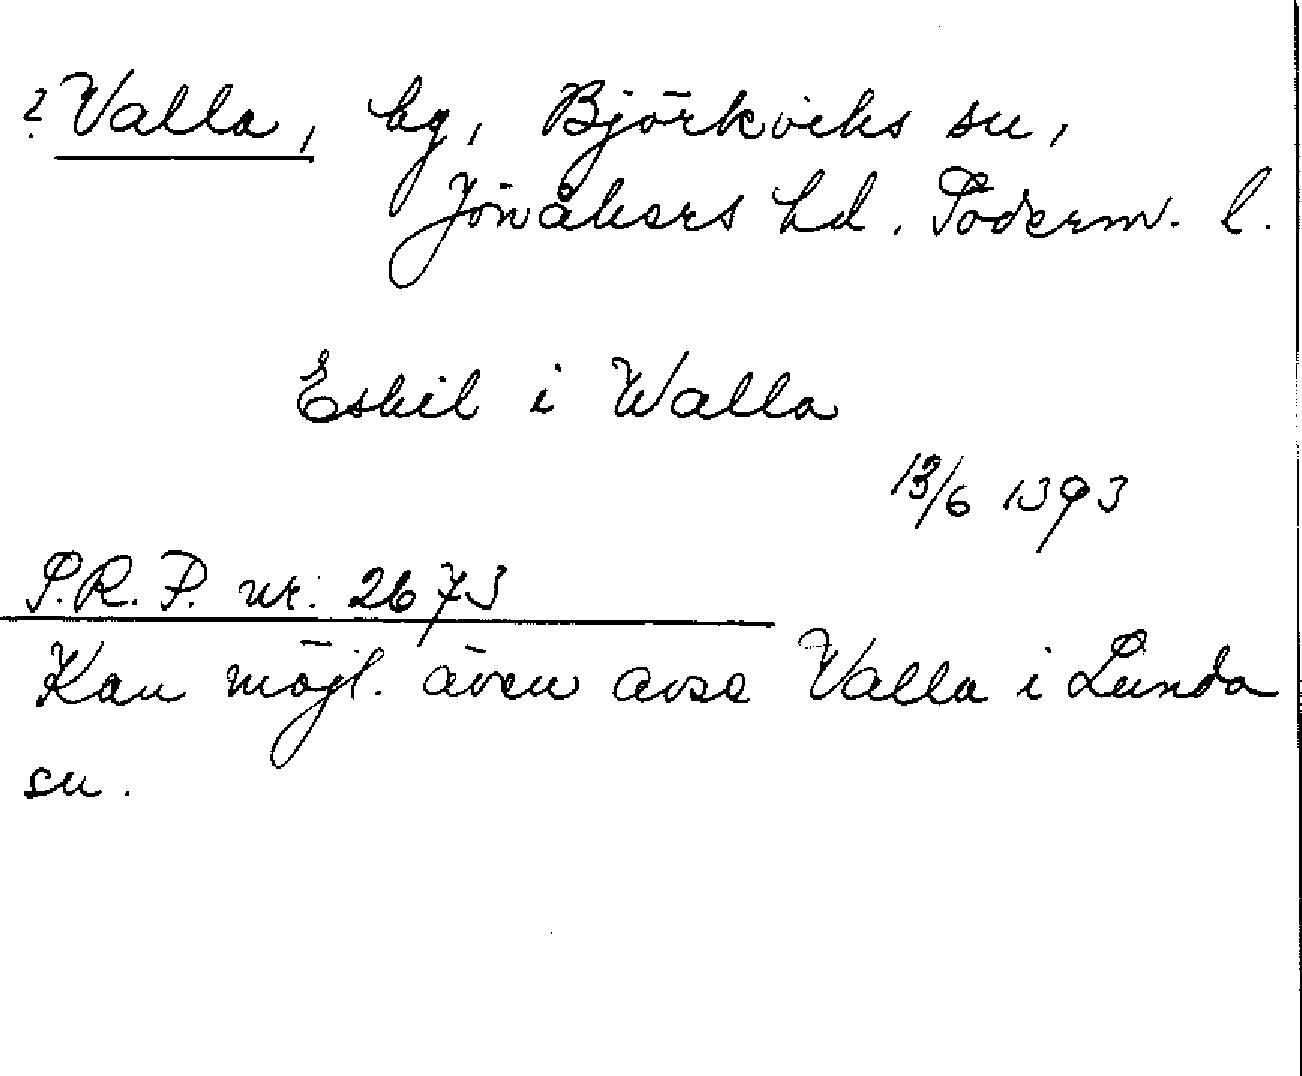 ? Valla, by, Björkviks sn,
Jönåkers hd. Söderm. l.
Eskil i Walla
13/6 1393
S.R.P. nr: 2673
Kan möjl. även avse Valla i Lunda
sn.